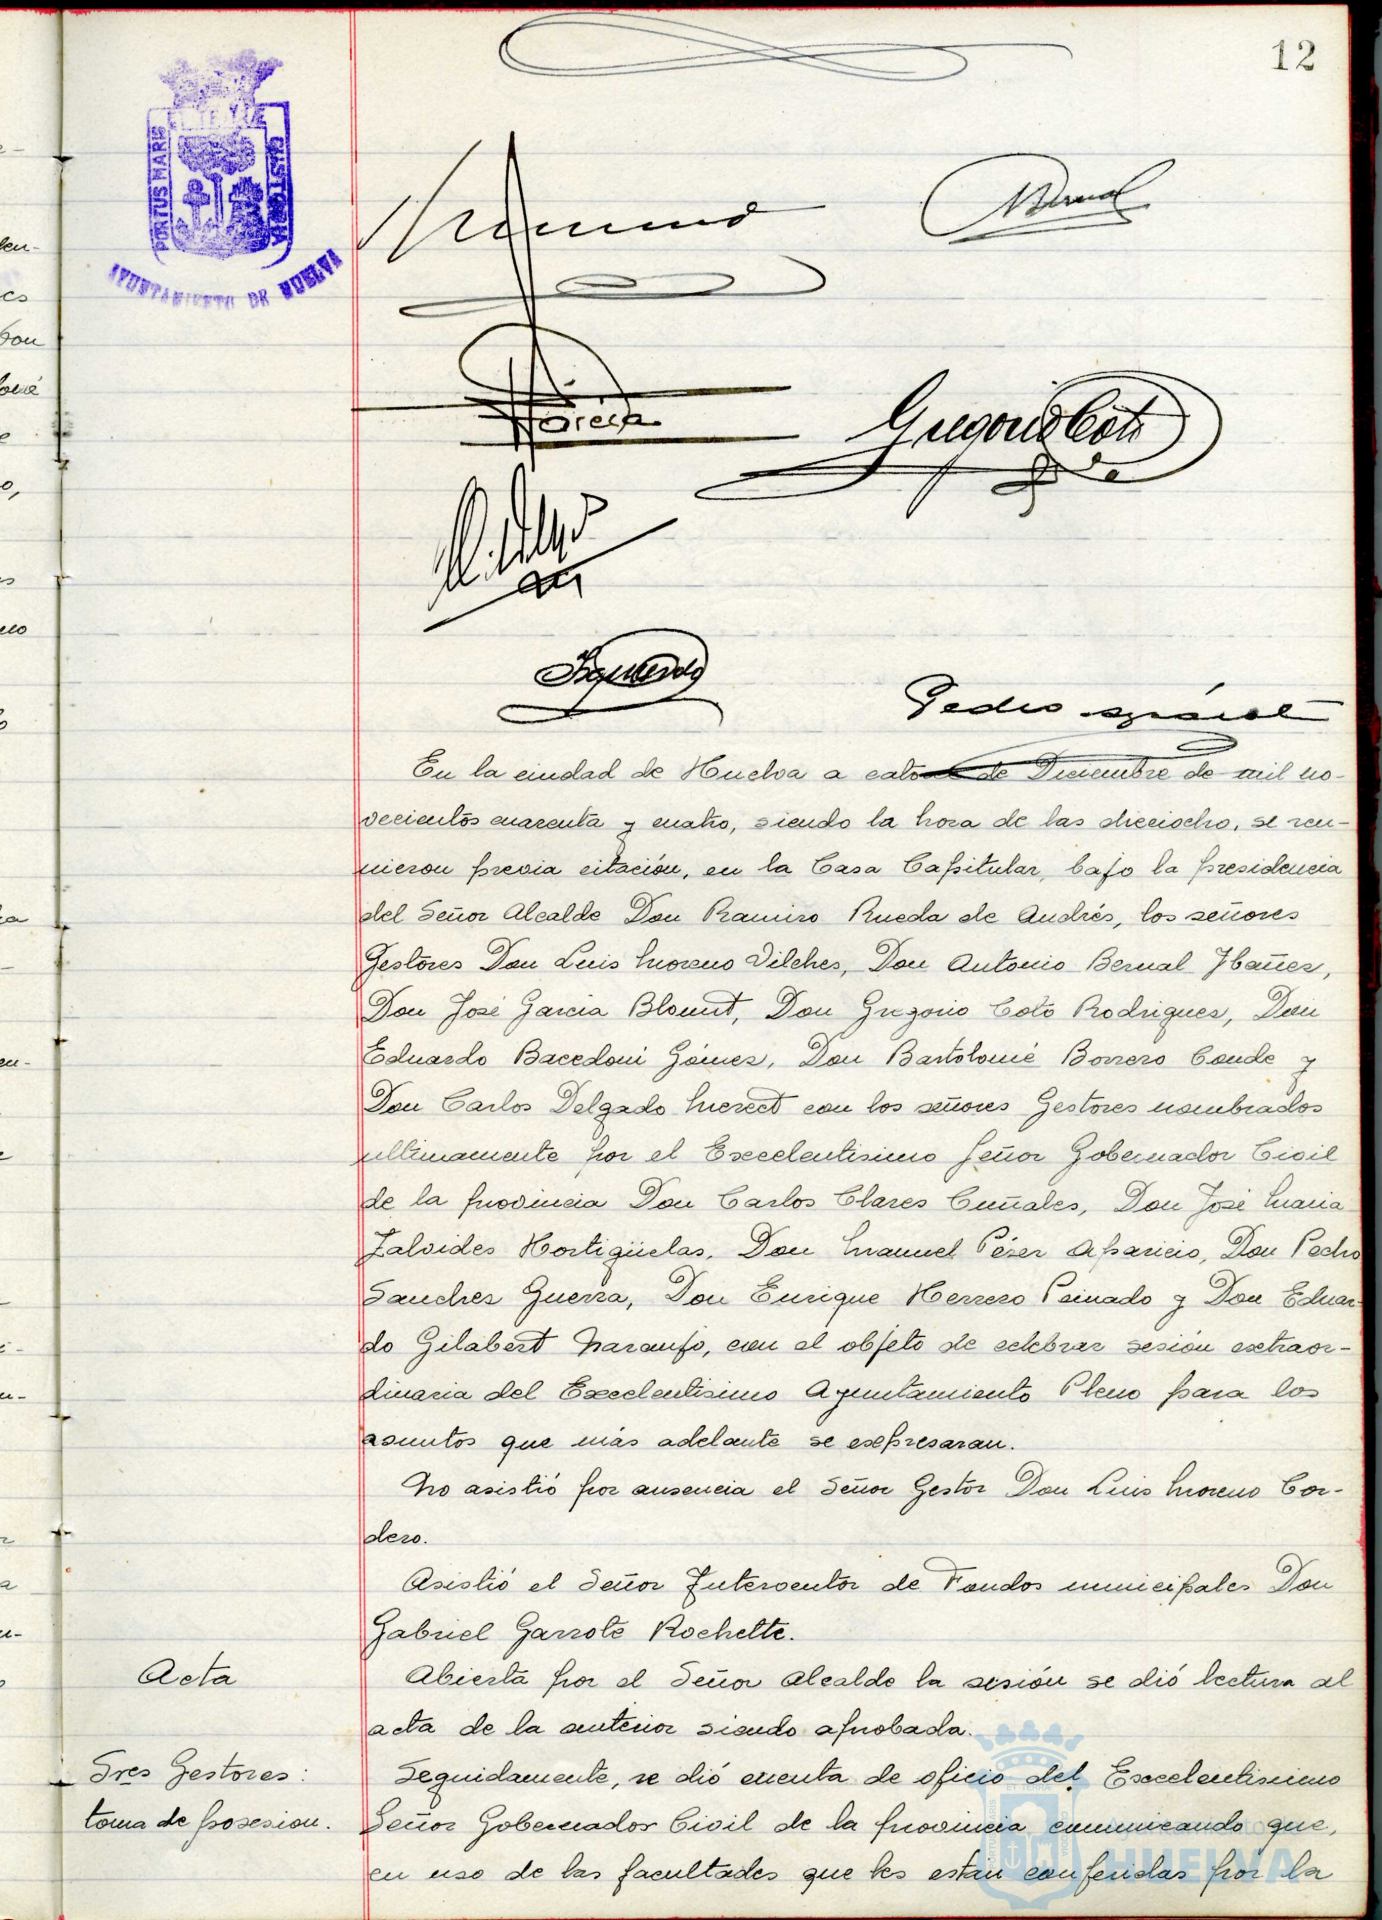 12
PORTUS MARIS
CUSTODIA
AYUNTAMIENTO DE HUELVA
Bernal
Gregorio Coto
Izquierdo
Pedro
En la ciudad de Huelva a catorce de Diciembre de mil no-
vecientos cuarenta y cuatro, siendo la hora de las dieciocho, se reu-
nieron previa citación, en la Casa Capitular, bajo la presidencia
del Señor Alcalde Don Ramiro Rueda de Andrés, los señores
Gestores Don Luis Moreno Vilches, Don Antonio Bernal Ybañez,
Don José Garcia Blount, Don Gregorio Coto Rodriguez, Don
Eduardo Bacedoni Gómez, Don Bartolomé Borrero Conde y
Don Carlos Delgado Merect con los señores Gestores nombrados
ultimamente por el Excelentisimo Señor Gobernador Civil
de la provincia Don Carlos Clares Cuñales, Don José Maria
Zalvides Hortigüelas, Don Manuel Pérez Aparicio, Don Pedro
Sanchez Guerra, Don Enrique Herrero Peinado y Don Eduar-
do Gilabert Naranjo, con el objeto de celebrar sesión extraor-
dinaria del Excelentisimo Ayuntamiento Pleno para los
asuntos que más adelante se expresaran.
No asistió por ausencia el Señor Gestor Don Luis Moreno Cor-
dero.
Asistió el Señor Interventor de Fondos municipales Don
Gabriel Garrote Rochette.
Acta
Abierta por el Señor Alcalde la sesión se dió lectura al
acta de la anterior siendo aprobada.
Sres Gestores:
toma de posesion.
Seguidamente, se dió cuenta de oficio del Excelentisimo
Señor Gobernador Civil de la provincia comunicando que,
en uso de las facultades que les estan conferidas por la
Ayuntamiento
HUELVA